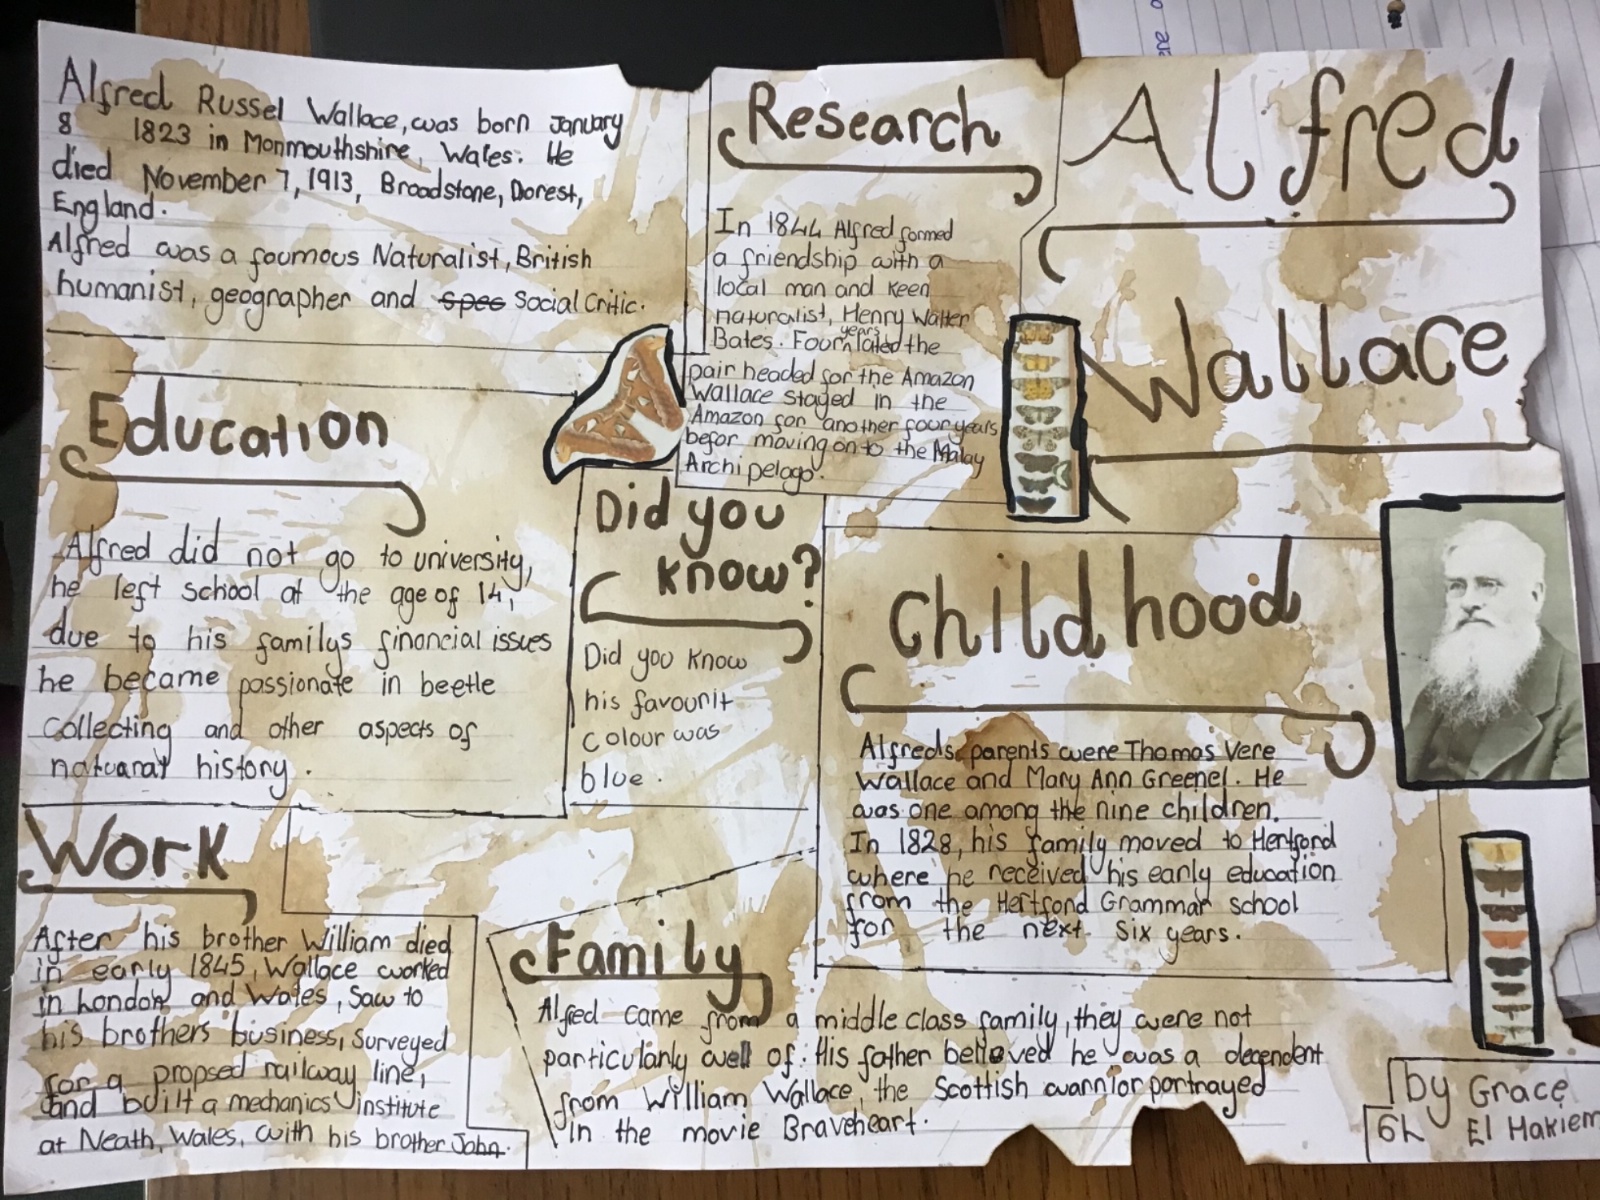 Alfred Russel Wallace, was born January
8 1823 in Monmouthshire, Wales. He
died November 7, 1913, Broadstone, Dorest,
England.
Alfred was a foumous Naturalist, British
humanist, geographer and spec Social Critic.
Research
In 1844 Alfred formed
a friendship with a
local man and keen
naturalist, Henry Walter
Bates. Four years lated the
pair headed for the Amazon
Wallace stayed in the
Amazon for another four years
befor moving on to the Malay
Archipelago.
Alfred
Wallace
Education
Alfred did not go to university,
he left school at the age of 14,
due to his familys financial issues
he became passionate in beetle
collecting and other aspects of
history.
Did you
know?
Did you know
his favourit
colour was
blue.
Childhood
Alfreds parents were Thomas Vere
Wallace and Mary Ann Greenel. He
was one among the nine children.
In 1828, his family moved to Hertford
where he received his early education
from the Hertford Grammar school
for the next six years.
Work
After his brother William died
in early 1845, Wallace worked
in London and Wales, saw to
his brothers business, surveyed
for a propsed railway line,
and built a mechanics institute
at Neath, Wales, with his brother John.
Family
Alfred came from a middle class family, they were not
particularly well of. His father believed he was a decendent
from William Wallace, the Scottish warrior portrayed
in the movie Braveheart.
by Grace
6H El Hakiem